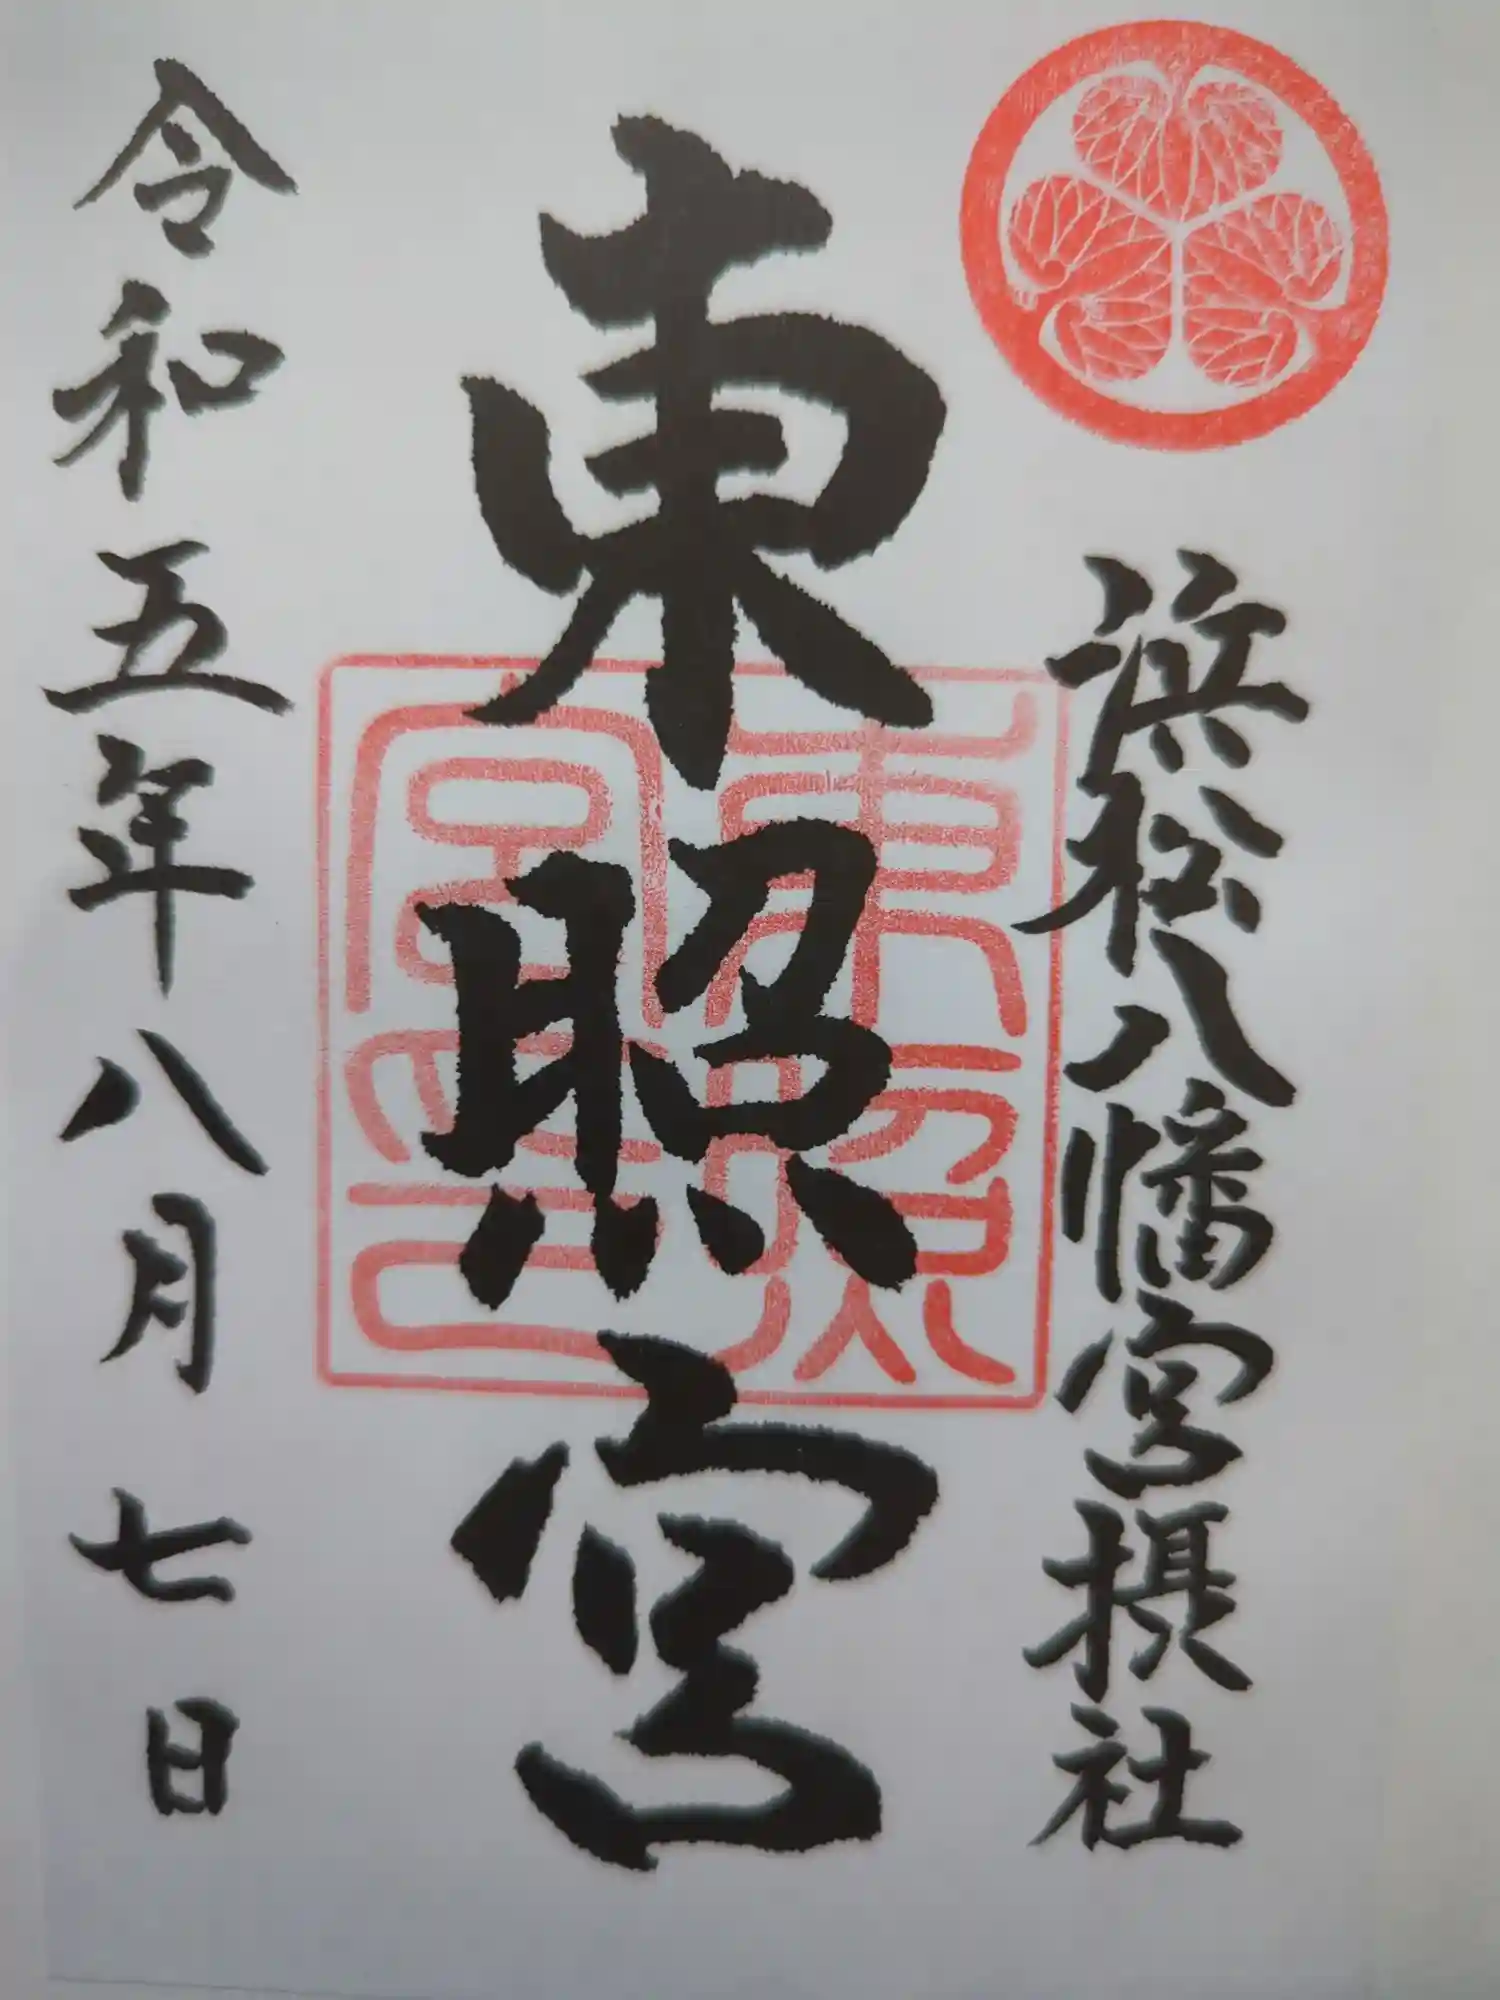 浜松八幡宮摂社
東照宮
東照宮印
令和五年八月七日